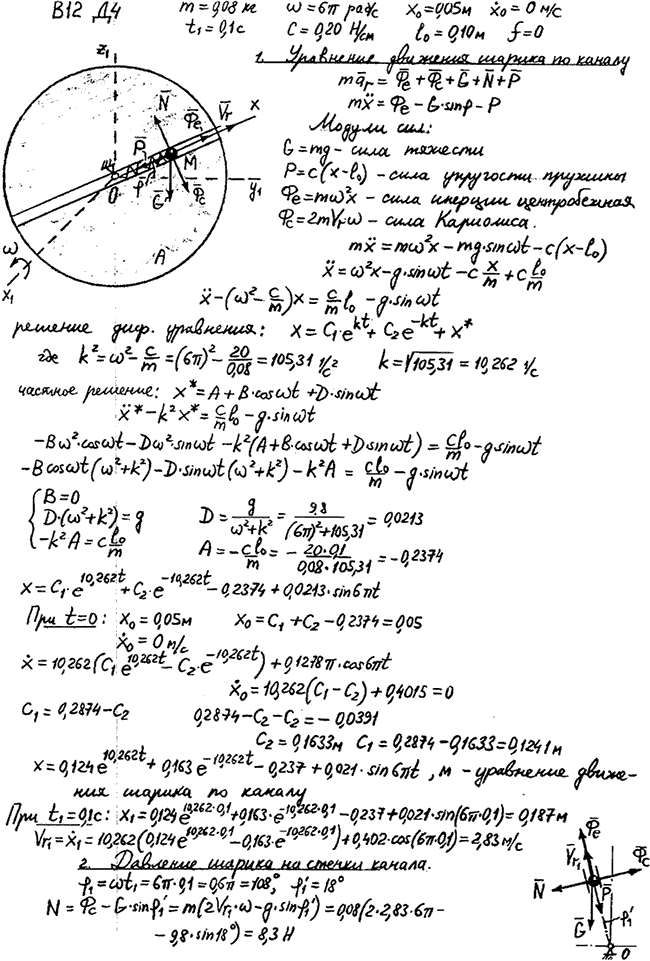 В12 Д4 m = 0,08 кг ω = 6π рад/с x₀ = 0,05м ẋ₀ = 0 м/с
t₁ = 0,1с C = 0,20 Н/см l₀ = 0,10м f = 0
1. Уравнение движения шарика по каналу
mā_r = Φ̄e + Φ̄c + Ḡ + N̄ + P̄
mẍ = Φe - G·sinφ - P
Модули сил:
G = mg - сила тяжести
P = c(x - l₀) - сила упругости пружины
Φe = mω²x - сила инерции центробежная
Φc = 2mVrω - сила Кариолиса.
z₁
N̄ V̄r x
Φ̄e
P̄ M
O φ Ḡ Φ̄c y₁
ω A
x₁
mẍ = mω²x - mg·sinωt - c(x - l₀)
ẍ = ω²x - g·sinωt - c x/m + c l₀/m
ẍ - (ω² - c/m)x = c/m l₀ - g·sinωt
решение диф. уравнения: x = C₁·e^kt + C₂e^-kt + x*
где k² = ω² - c/m = (6π)² - 20/0,08 = 105,31 1/с² k = √105,31 = 10,262 1/с
частное решение: x* = A + B·cosωt + D·sinωt
ẍ* - k²x* = c/m l₀ - g·sinωt
-Bω²·cosωt - Dω²·sinωt - k²(A + B·cosωt + D·sinωt) = cl₀/m - g·sinωt
-Bcosωt(ω² + k²) - D·sinωt(ω² + k²) - k²A = cl₀/m - g·sinωt
{ B = 0
D·(ω² + k²) = g D = g/(ω² + k²) = 9,8/((6π)² + 105,31) = 0,0213
-k²A = c l₀/m A = - cl₀/m = - 20·0,1/(0,08·105,31) = -0,2374
x = C₁·e^10,262t + C₂·e^-10,262t - 0,2374 + 0,0213·sin6πt
При t=0: x₀ = 0,05м x₀ = C₁ + C₂ - 0,2374 = 0,05
ẋ₀ = 0 м/с
ẋ = 10,262(C₁e^10,262t - C₂·e^-10,262t) + 0,1278π·cos6πt
ẋ₀ = 10,262(C₁ - C₂) + 0,4015 = 0
C₁ = 0,2874 - C₂ 0,2874 - C₂ - C₂ = - 0,0391
C₂ = 0,1633м C₁ = 0,2874 - 0,1633 = 0,1241м
x = 0,124e^10,262t + 0,163e^-10,262t - 0,237 + 0,021·sin6πt, м - уравнение движе-
ния шарика по каналу
При t₁=0,1с: x₁ = 0,124e^10,262·0,1 + 0,163·e^-10,262·0,1 - 0,237 + 0,021·sin(6π·0,1) = 0,187м
Vr₁ = ẋ₁ = 10,262(0,124e^10,262·0,1 - 0,163·e^-10,262·0,1) + 0,402·cos(6π·0,1) = 2,83 м/с
2. Давление шарика на стенки канала.
φ₁ = ωt₁ = 6π·0,1 = 0,6π = 108°, φ₁' = 18°
N = Φc - G·sinφ₁' = m(2Vr₁·ω - g·sinφ₁') = 0,08(2·2,83·6π -
- 9,8·sin18°) = 8,3 Н
Φ̄e
V̄r₁ Φ̄c
N̄ P̄
Ḡ φ₁'
O